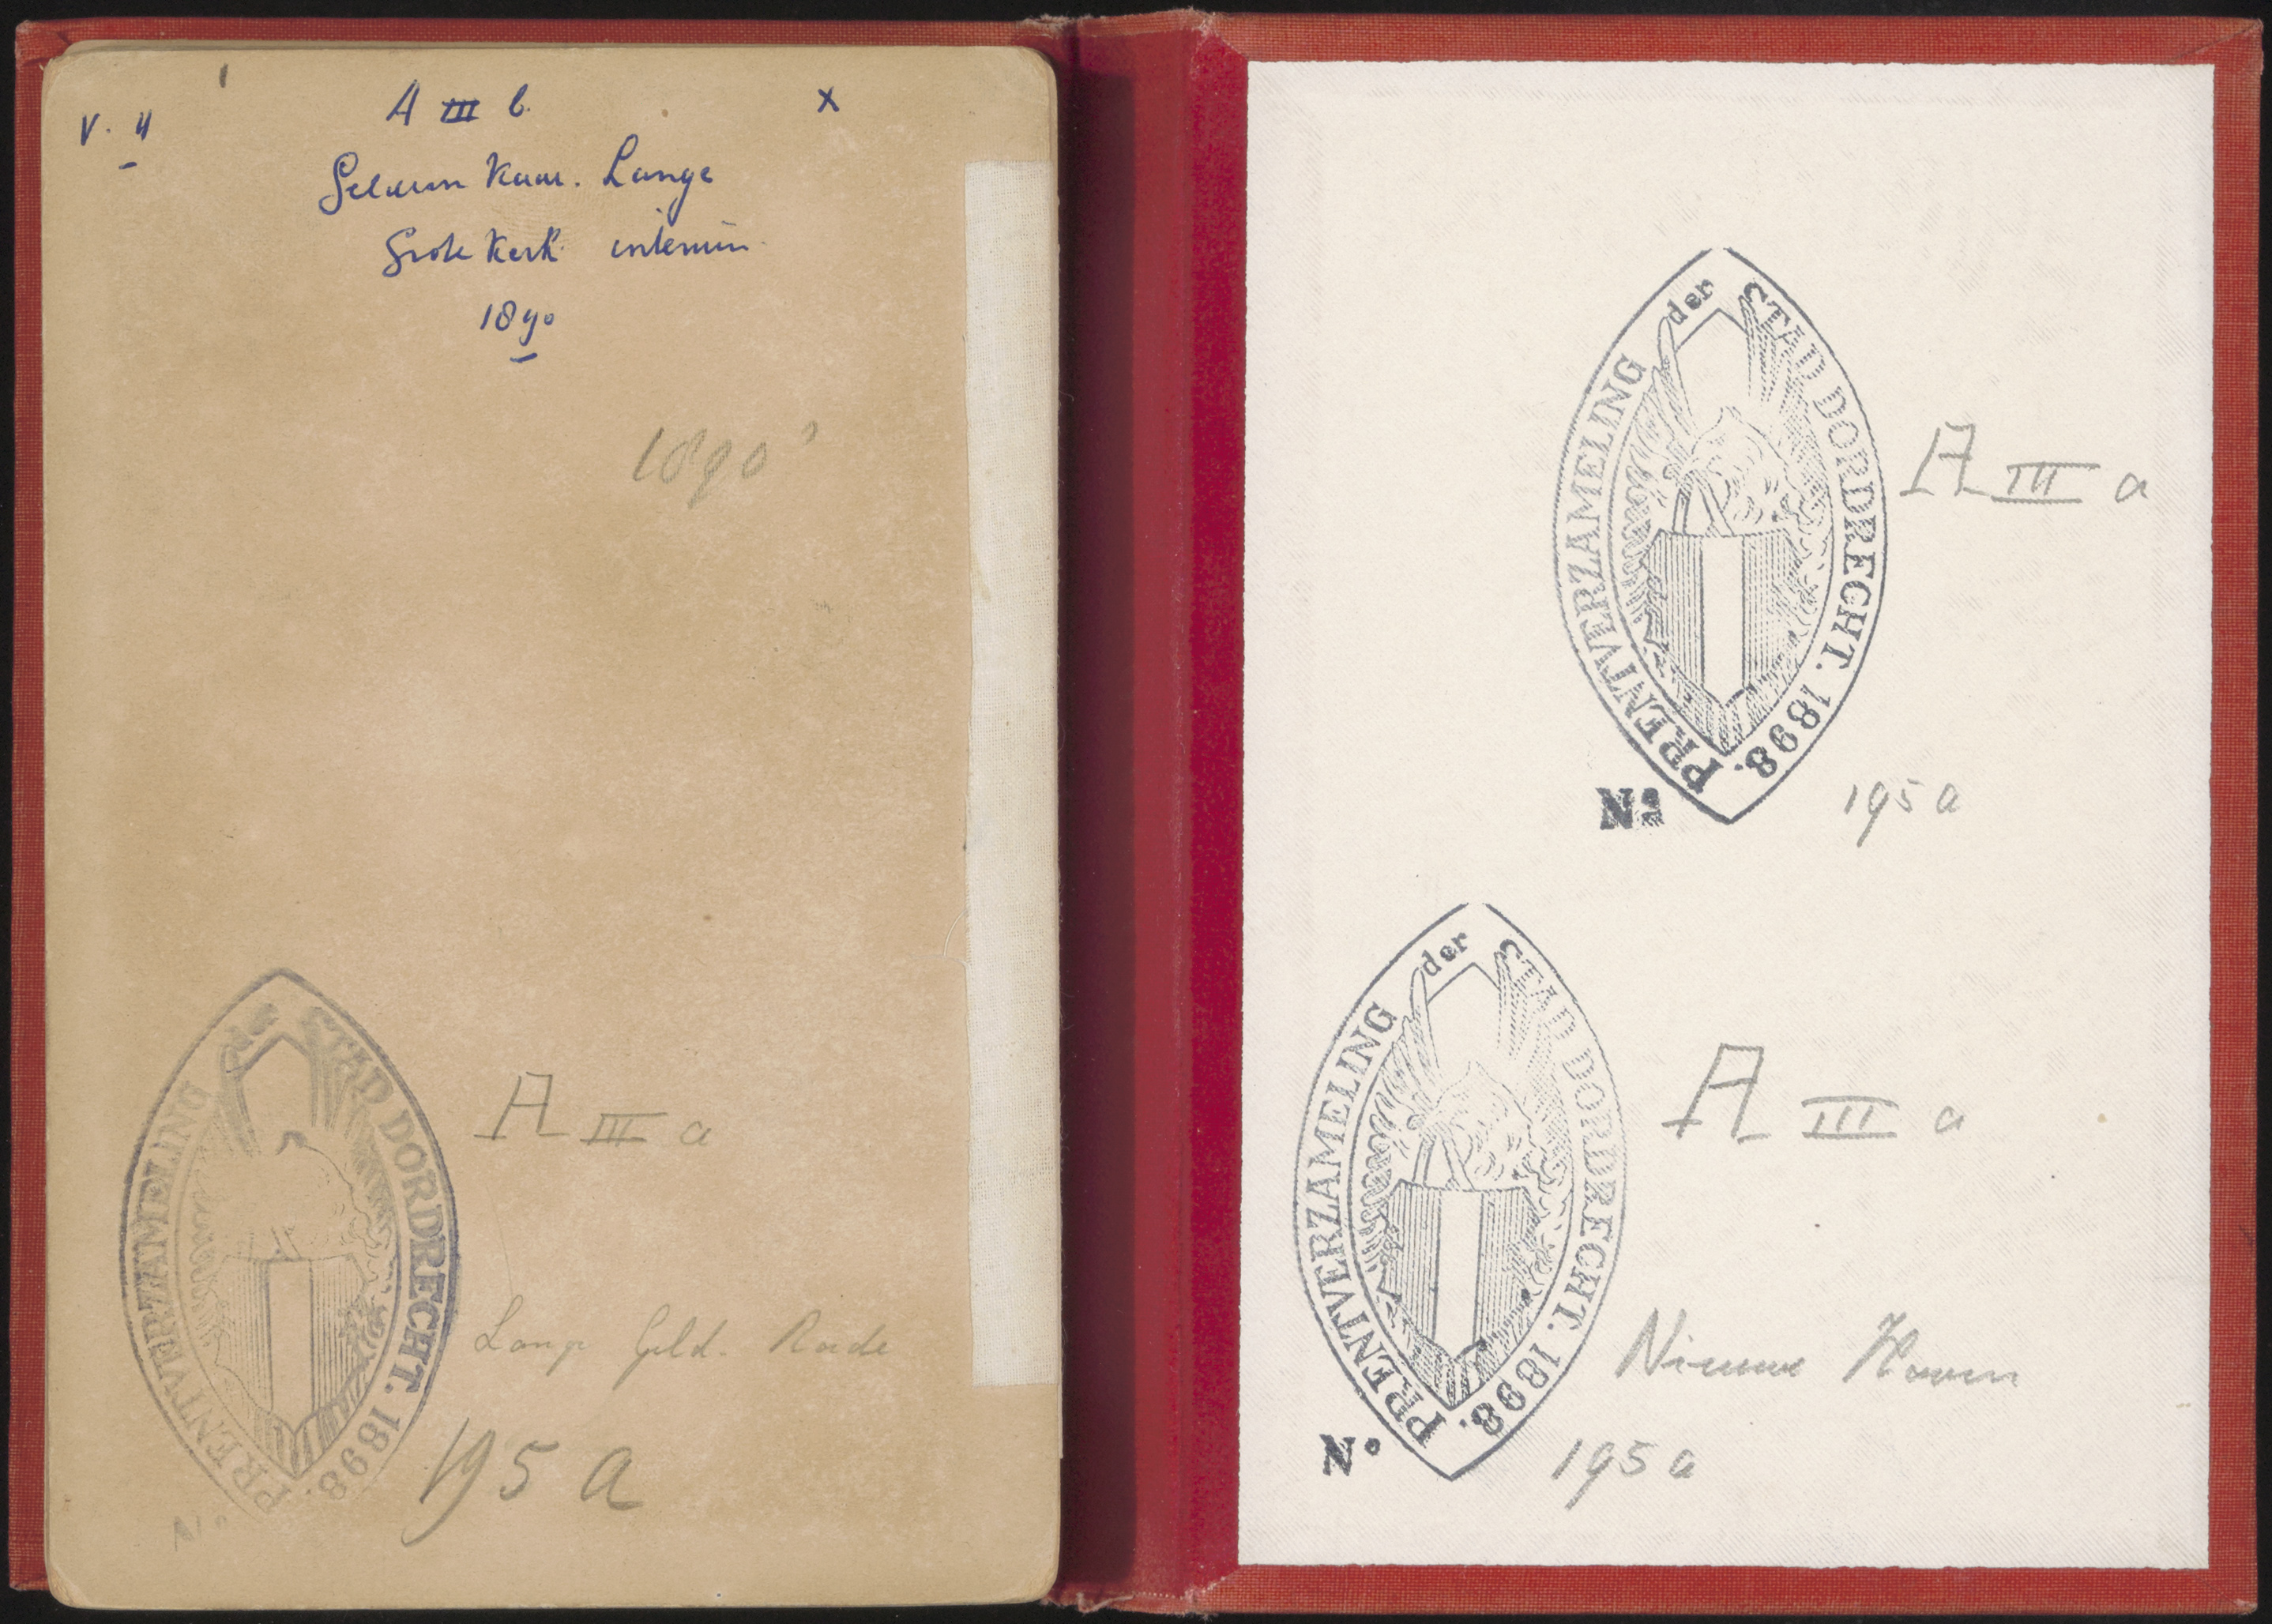 V. 4
A III b.
x
Grote Kerk interieur
1890
1890
PRENTVERZAMELING der STAD DORDRECHT. 1898.
N°
A III a
Lange Geld. Kade
195 a
PRENTVERZAMELING der STAD DORDRECHT. 1898.
A III a
N°
195 a
PRENTVERZAMELING der STAD DORDRECHT. 1898.
A III a
Nieuwe Haven
N°
195 a